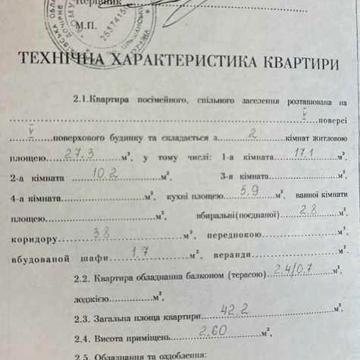 Керівник
М.П.
ТЕХНІЧНА ХАРАКТЕРИСТИКА КВАРТИРИ
2.1.Квартира посімейного, спільного заселення розташована на
V поверсі
V поверхового будинку та складається з 2 кімнат житловою
площею 27.3 м², у тому числі: 1-а кімната 17.1
2-а кімната 10.2 м², 3-я кімната м²,
4-а кімната м², кухні площею 5,9 м², ванної кімнати
площею м², вбиральні(поєднаної) 2.8 м²,
коридору 3.8 м², передпокою м²,
вбудованої шафи 1,7 м², веранди м².
2.2. Квартира обладнана балконом (терасою) 2.4/0.7 м²,
лоджією м².
2.3. Загальна площа квартири 42,2 м²,
2.4. Висота приміщень 2.60 м²,
2.5. Обладнання та оздоблення: